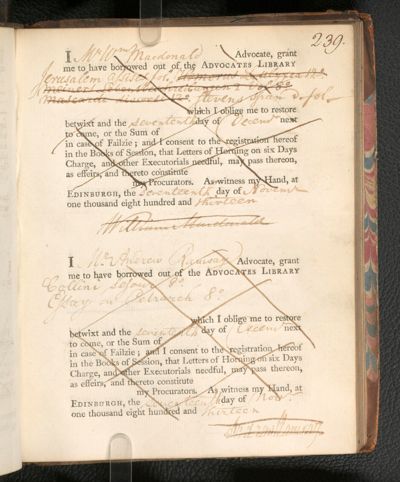 239.
I Mr Wm Macdonald Advocate, grant
me to have borrowed out of the ADVOCATES LIBRARY
Jerusalem Assises fol.
Stevens fol.
which I oblige me to restore
betwixt and the seventeenth day of Decemr next
to come, or the Sum of
in case of Failzie; and I consent to the registration hereof
in the Books of Session, that Letters of Horning on six Days
Charge, and other Executorials needful, may pass thereon,
as effeirs, and thereto constitute
my Procurators. As witness my Hand, at
EDINBURGH, the Seventeenth day of Novemr
one thousand eight hundred and thirteen
William Macdonald
I Mr Andrew Ramsay Advocate, grant
me to have borrowed out of the ADVOCATES LIBRARY
Collini 8o
Essay on Petrarch 8o
which I oblige me to restore
betwixt and the seventeenth day of Decemr next
to come, or the Sum of
in case of Failzie; and I consent to the registration hereof
in the Books of Session, that Letters of Horning on six Days
Charge, and other Executorials needful, may pass thereon,
as effeirs, and thereto constitute
my Procurators. As witness my Hand, at
EDINBURGH, the seventeenth day of Novr
one thousand eight hundred and thirteen
Andrew Ramsay